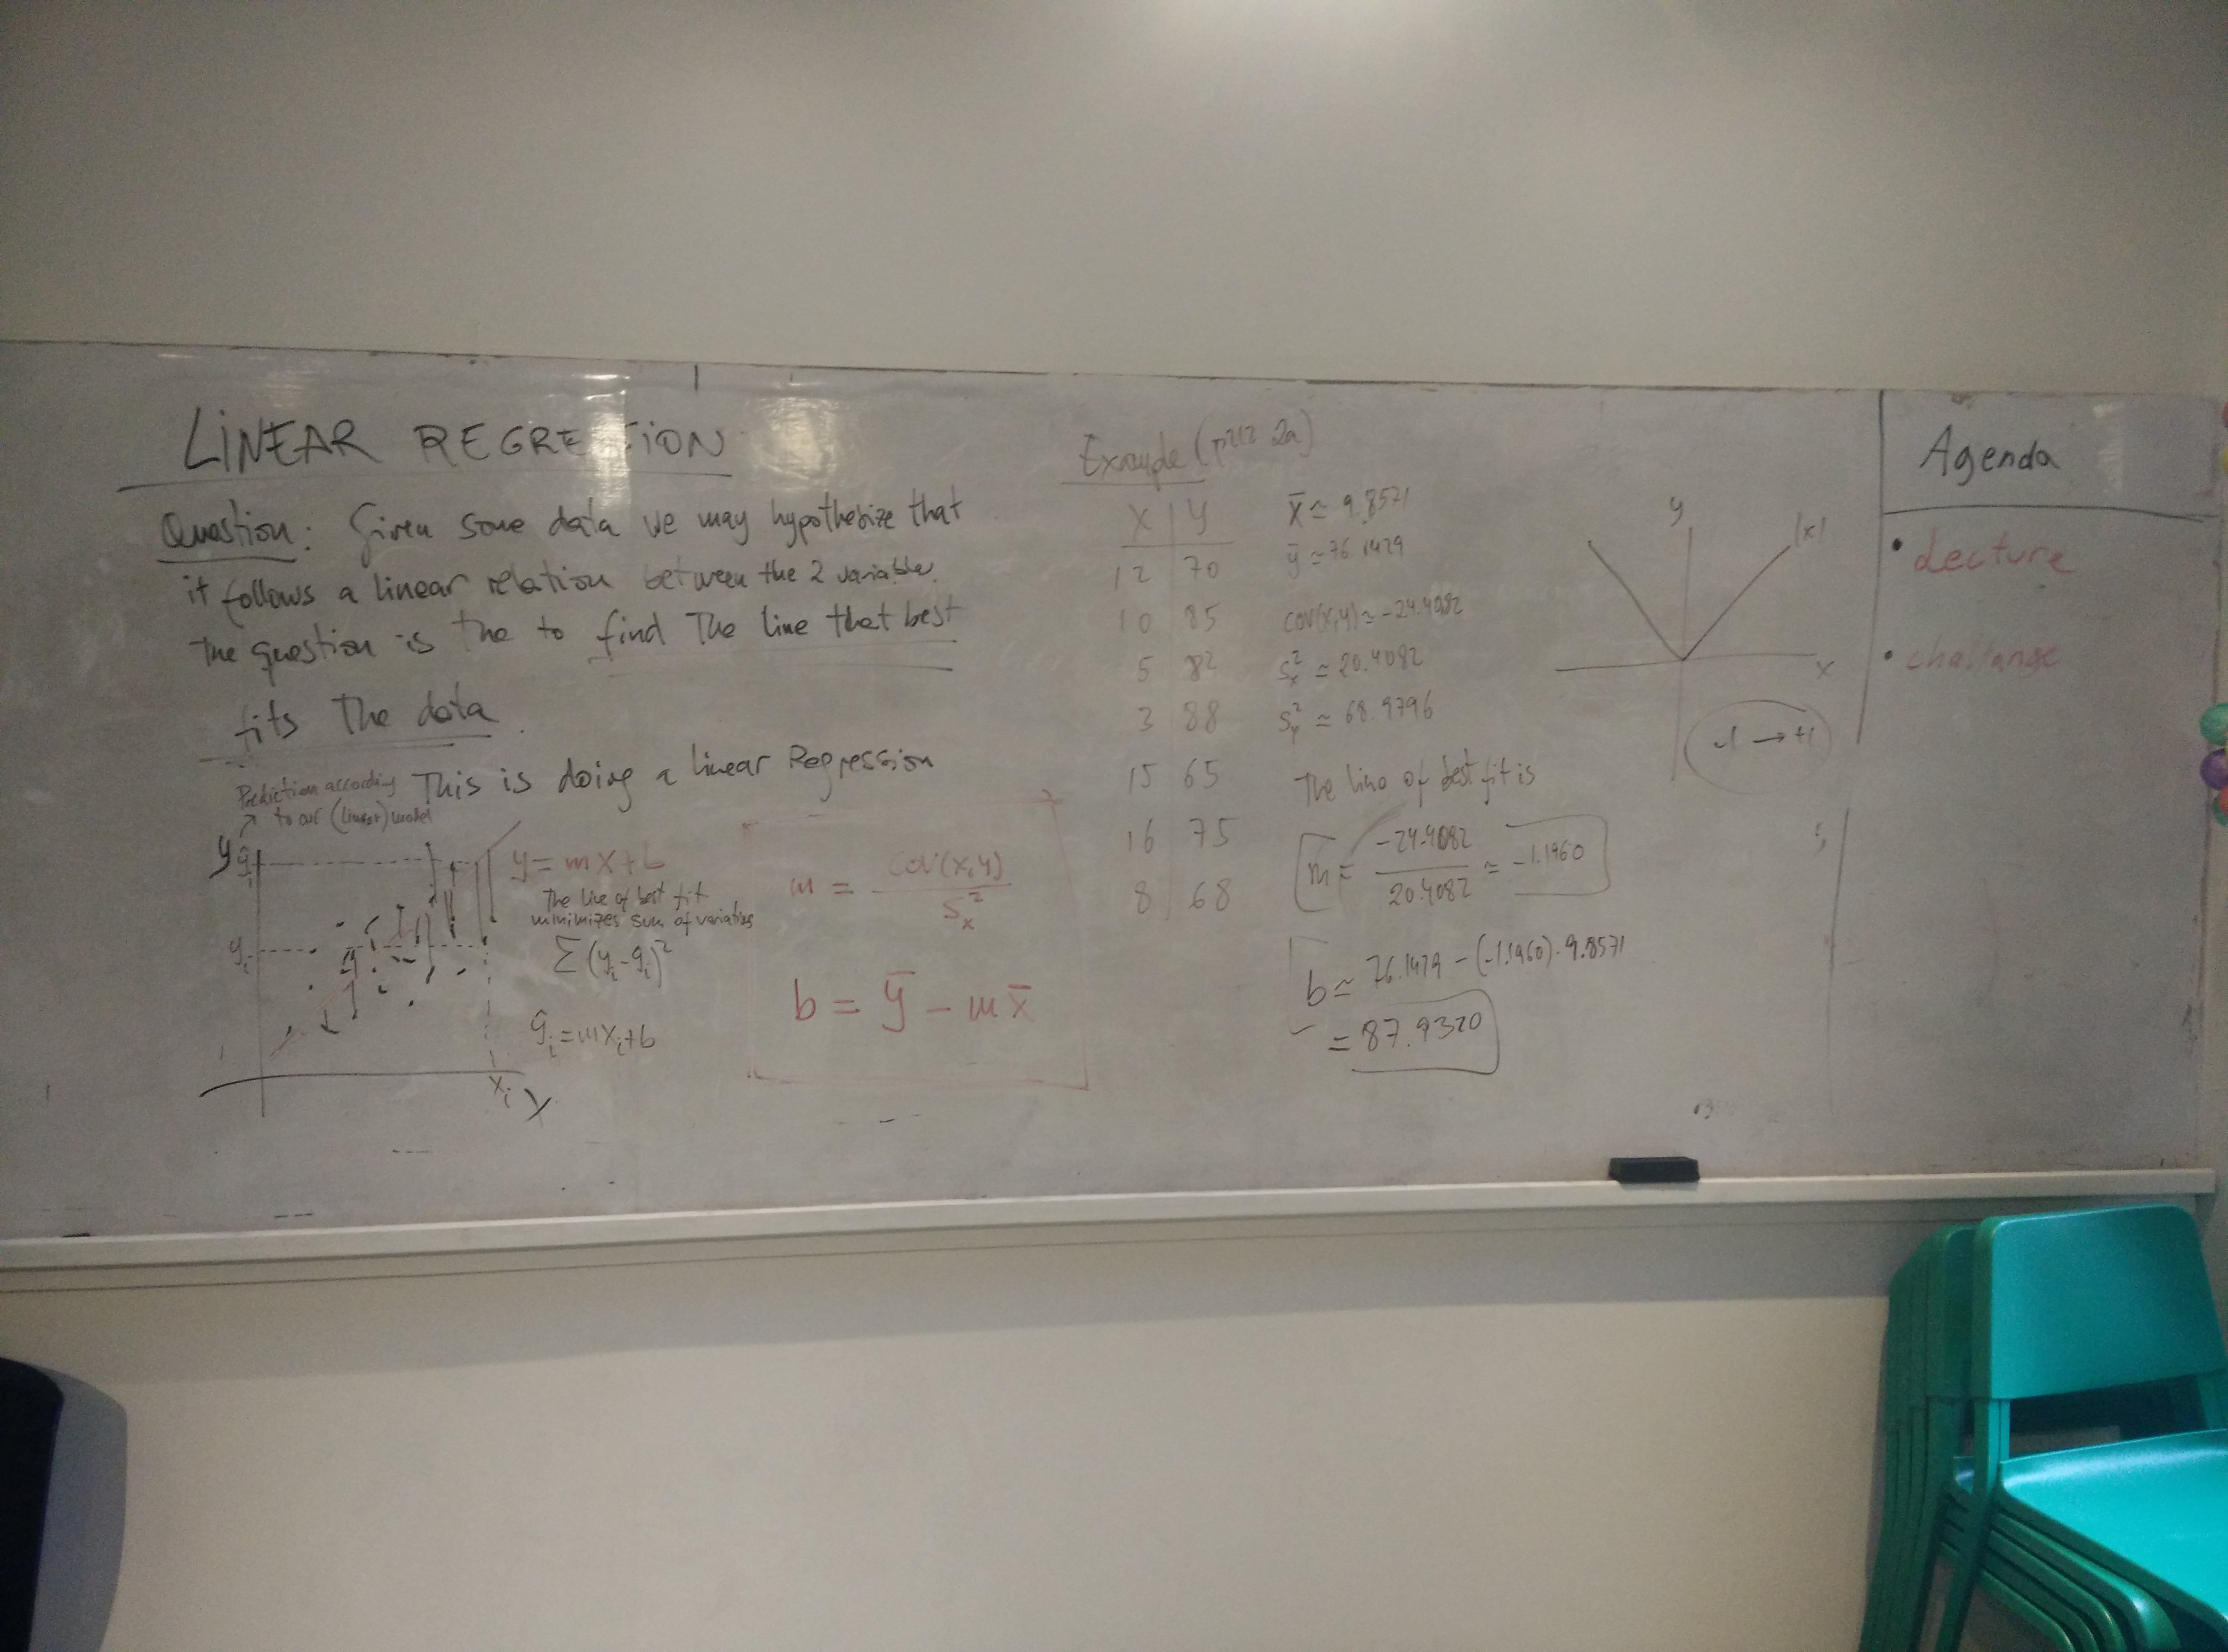 LINEAR REGRE TION
Question: Given some data we may hypothesize that
it follows a linear relation between the 2 variables.
The question is the to find The line that best
fits The data.
This is doing a linear Regression
Prediction according
to our (linear) model
y
ŷᵢ
yᵢ
xᵢ
X
y = mx + b
The line of best fit
minimizes sum of variations
Σ(yᵢ - ŷᵢ)²
ŷᵢ = mxᵢ + b
m = cov(x,y) / Sₓ²
b = ȳ - m x̄
Example (p212 2a)
X | Y
12 | 70
10 | 85
5 | 82
3 | 88
15 | 65
16 | 75
8 | 68
x̄ ≃ 9.8571
ȳ ≃ 76.1429
cov(x,y) ≃ -24.4082
Sₓ² ≃ 20.4082
Sᵧ² ≃ 68.9796
The line of best fit is
m = -24.4082 / 20.4082 ≃ -1.1960
b ≃ 76.1429 - (-1.1960)·9.8571
= 87.9320
y
|x|
x
-1 → +1
Agenda
• Lecture
• challange